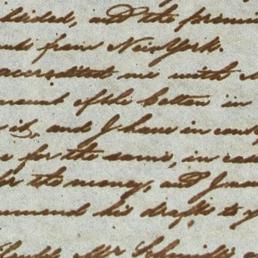 blided, and the premiu
from New York.
accredited me with
amount of the Cotton in
it, and I have in cons
for the same, in cas
for the money, and I
mmend his drafts to y
Mr Schmidt